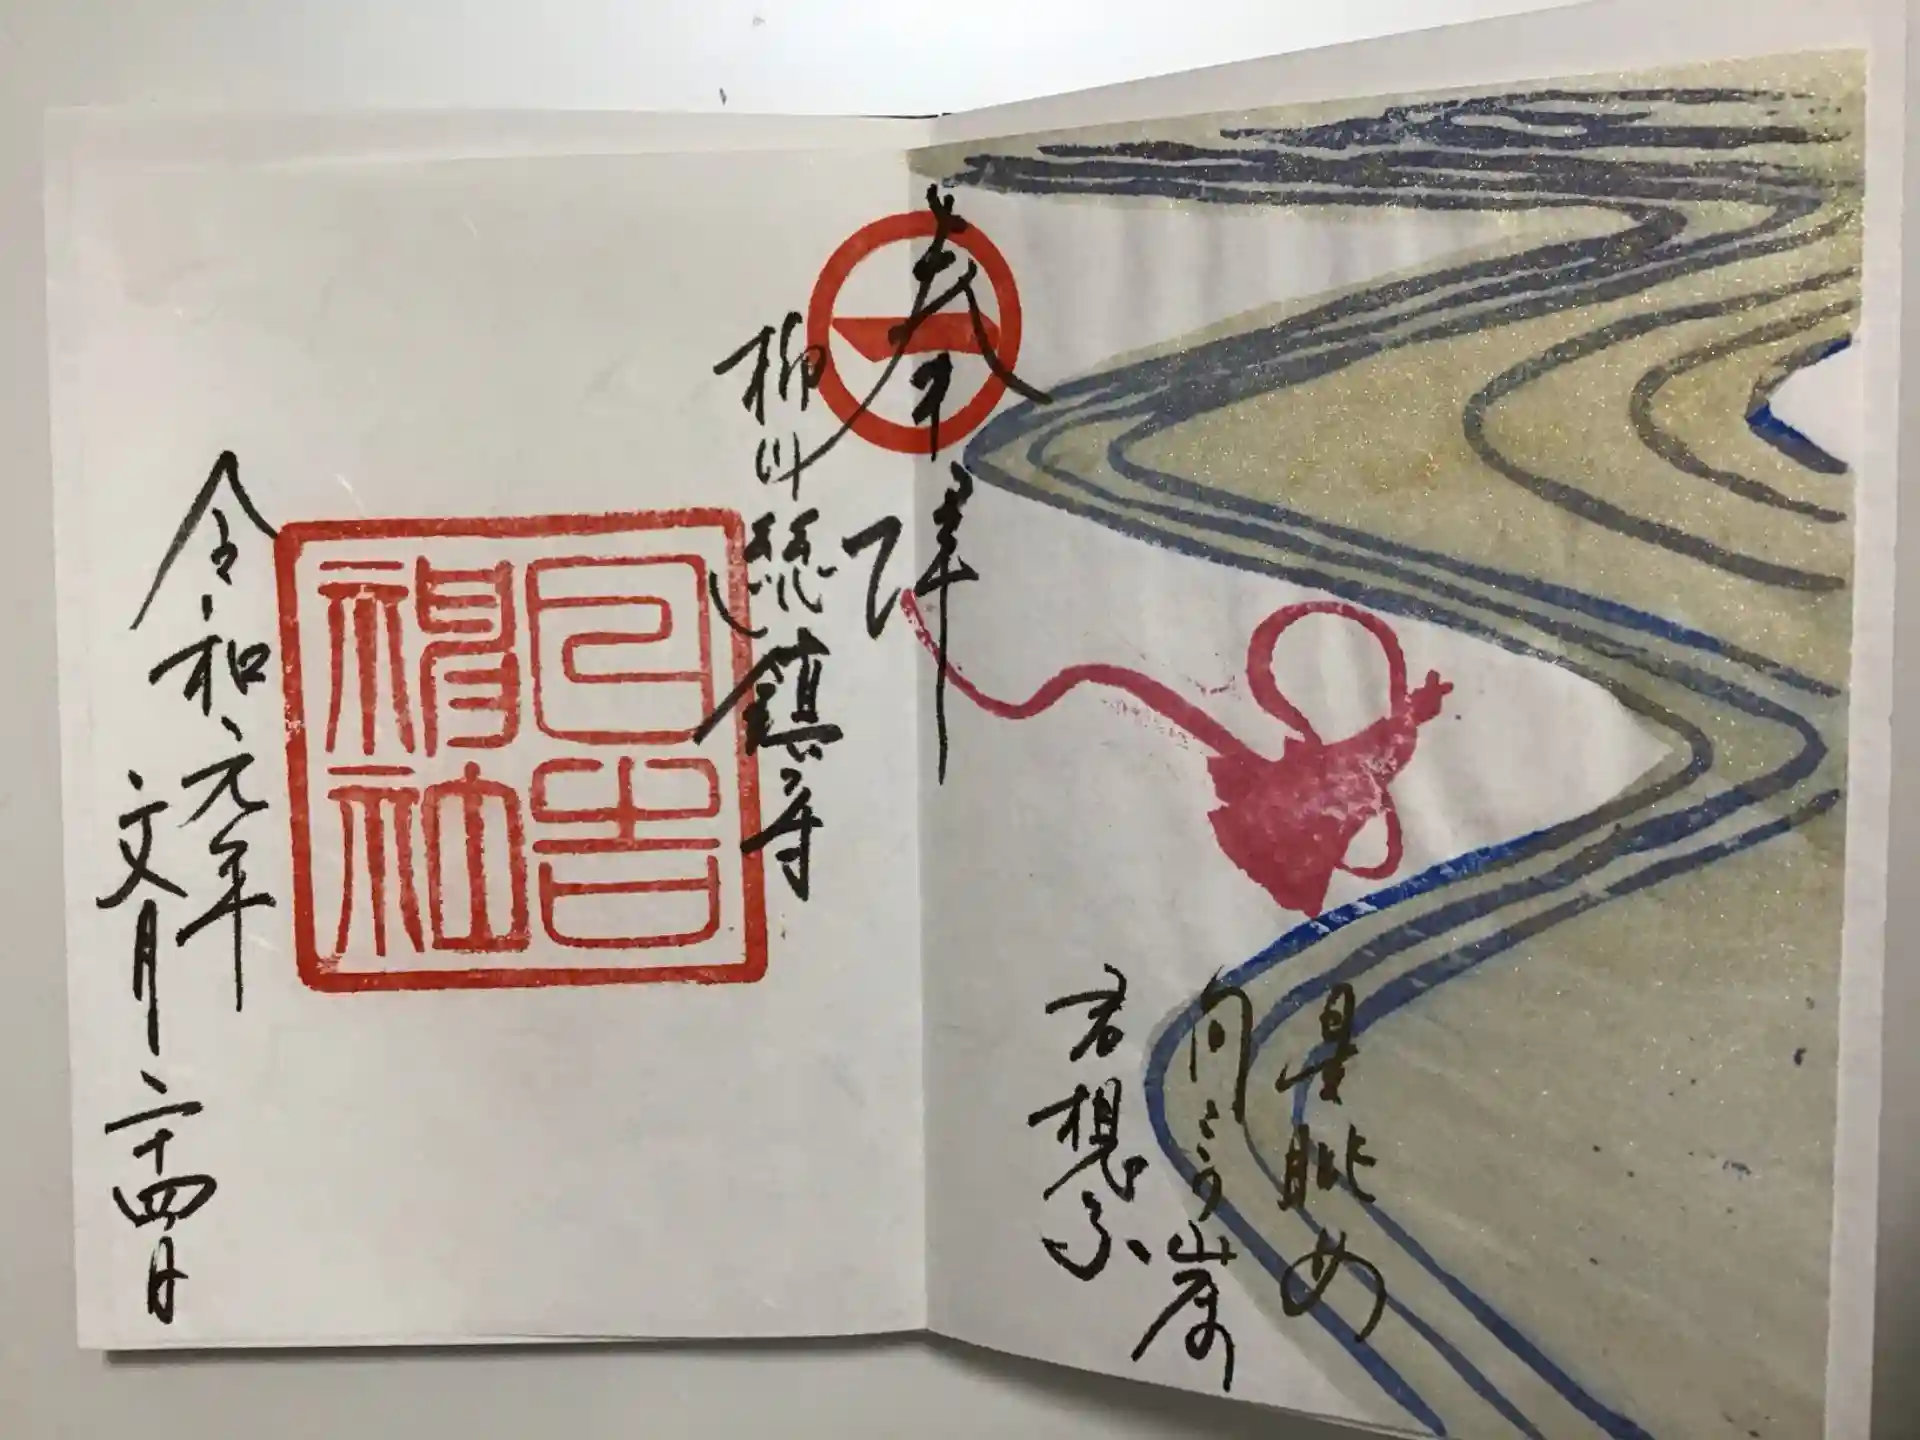 星眺め
向こう岸の
君想ふ
奉拝
柳川総鎮守
日吉
神社
令和元年
文月二十四日